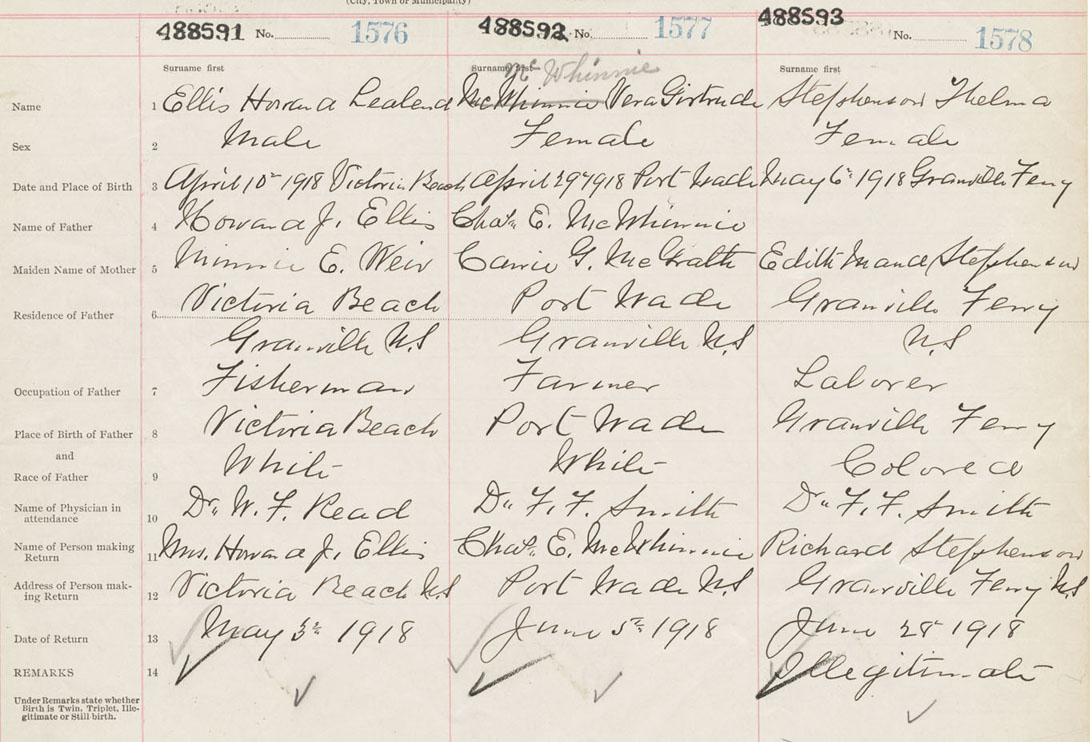 (City, Town or Municipality)
488591 No. 1576 488592 No. 1577 488593 No. 1578
Surname first Surname first Mc Whinnie Surname first
Name 1 Ellis Howard Lealend McWhinnie Vera Girtrude Stephenson Thelma
Sex 2 Male Female Female
Date and Place of Birth 3 April 10th 1918 Victoria Beach April 29 1918 Port Wade May 6th 1918 Granville Ferry
Name of Father 4 Howard J. Ellis Chas. E. McWhinnie
Maiden Name of Mother 5 Minnie E. Weir Carrie G. McGrath Edith Maud Stephenson
Residence of Father 6 Victoria Beach Port Wade Granville Ferry
Granville N.S Granville N.S N.S
Occupation of Father 7 Fisherman Farmer Laborer
Place of Birth of Father 8 Victoria Beach Port Wade Granville Ferry
and
Race of Father 9 White White Colored
Name of Physician in
attendance 10 Dr. W. F. Read Dr. F. F. Smith Dr. F. F. Smith
Name of Person making
Return 11 Mrs. Howard J. Ellis Chas. E. McWhinnie Richard Stephenson
Address of Person mak-
ing Return 12 Victoria Beach N.S Port Wade N.S Granville Ferry N.S
Date of Return 13 May 3rd 1918 June 5th 1918 June 28 1918
REMARKS 14 Illegitimate
Under Remarks state whether
Birth is Twin, Triplet, Ille-
gitimate or Still birth.